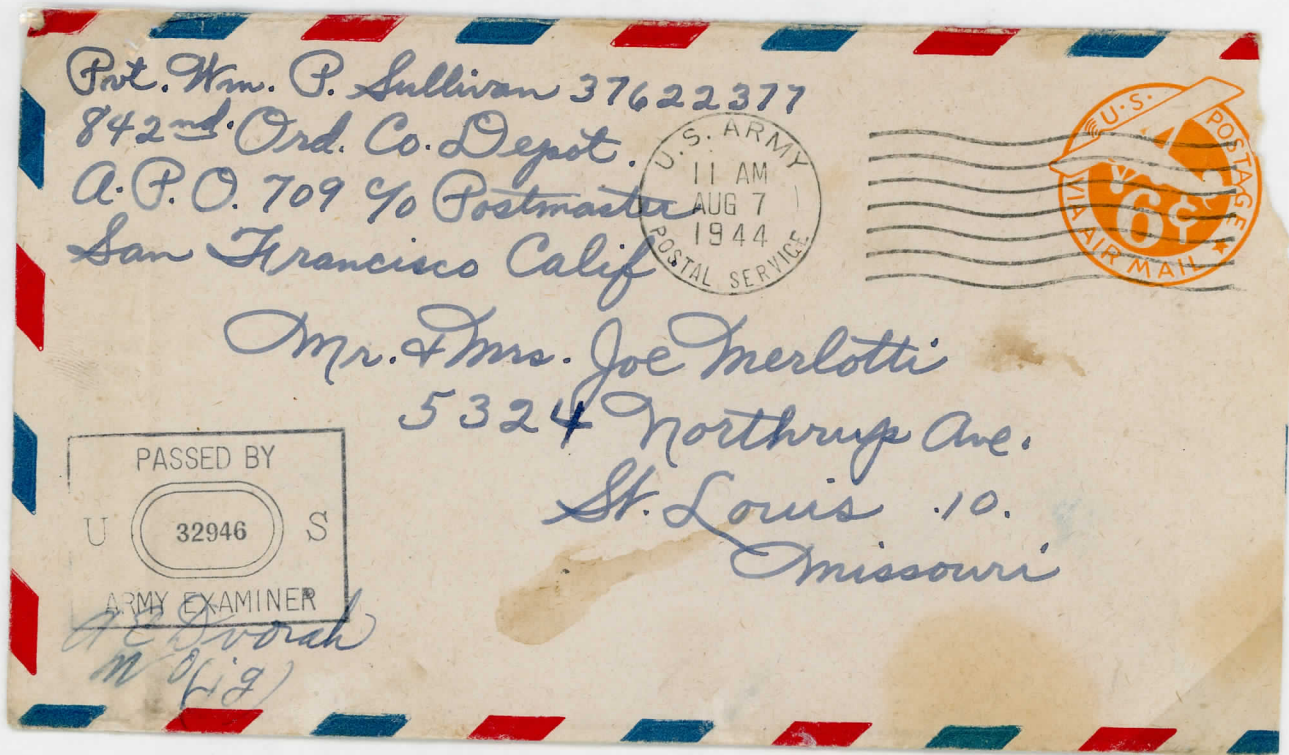 Pvt. Wm. P. Sullivan 37622377
842nd. Ord. Co. Depot.
A.P.O. 709 c/o Postmaster
San Francisco Calif
U.S. ARMY
11 AM
AUG 7
1944
POSTAL SERVICE
U.S. POSTAGE
6¢
VIA AIR MAIL
Mr. & Mrs. Joe Merlotti
5324 Northrup Ave.
St. Louis .10.
Missouri
PASSED BY
U 32946 S
ARMY EXAMINER